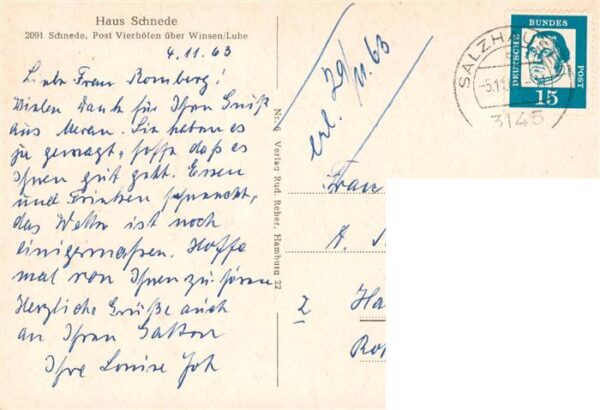 Haus Schnede
2091 Schnede, Post Vierhöfen über Winsen/Luhe
4.11.63
Liebe Frau Romberg!
Vielen Dank für Ihren Gruß
aus Meran. Sie haben es
ja gewagt, hoffe daß es
Ihnen gut geht. Essen
und Trinken schmeckt,
das Wetter ist noch
einigermaßen. Hoffe
mal von Ihnen zu hören
Herzliche Grüße auch
an Ihren Gatten
Ihre Louise Joh
Nr. 6 Verlag Rud. Reher, Hamburg 22
erl. 29/11.63
Frau
A. S
2 Ha
Ro
SALZHAUSEN
-5.11.
3145
DEUTSCHE BUNDES POST
15